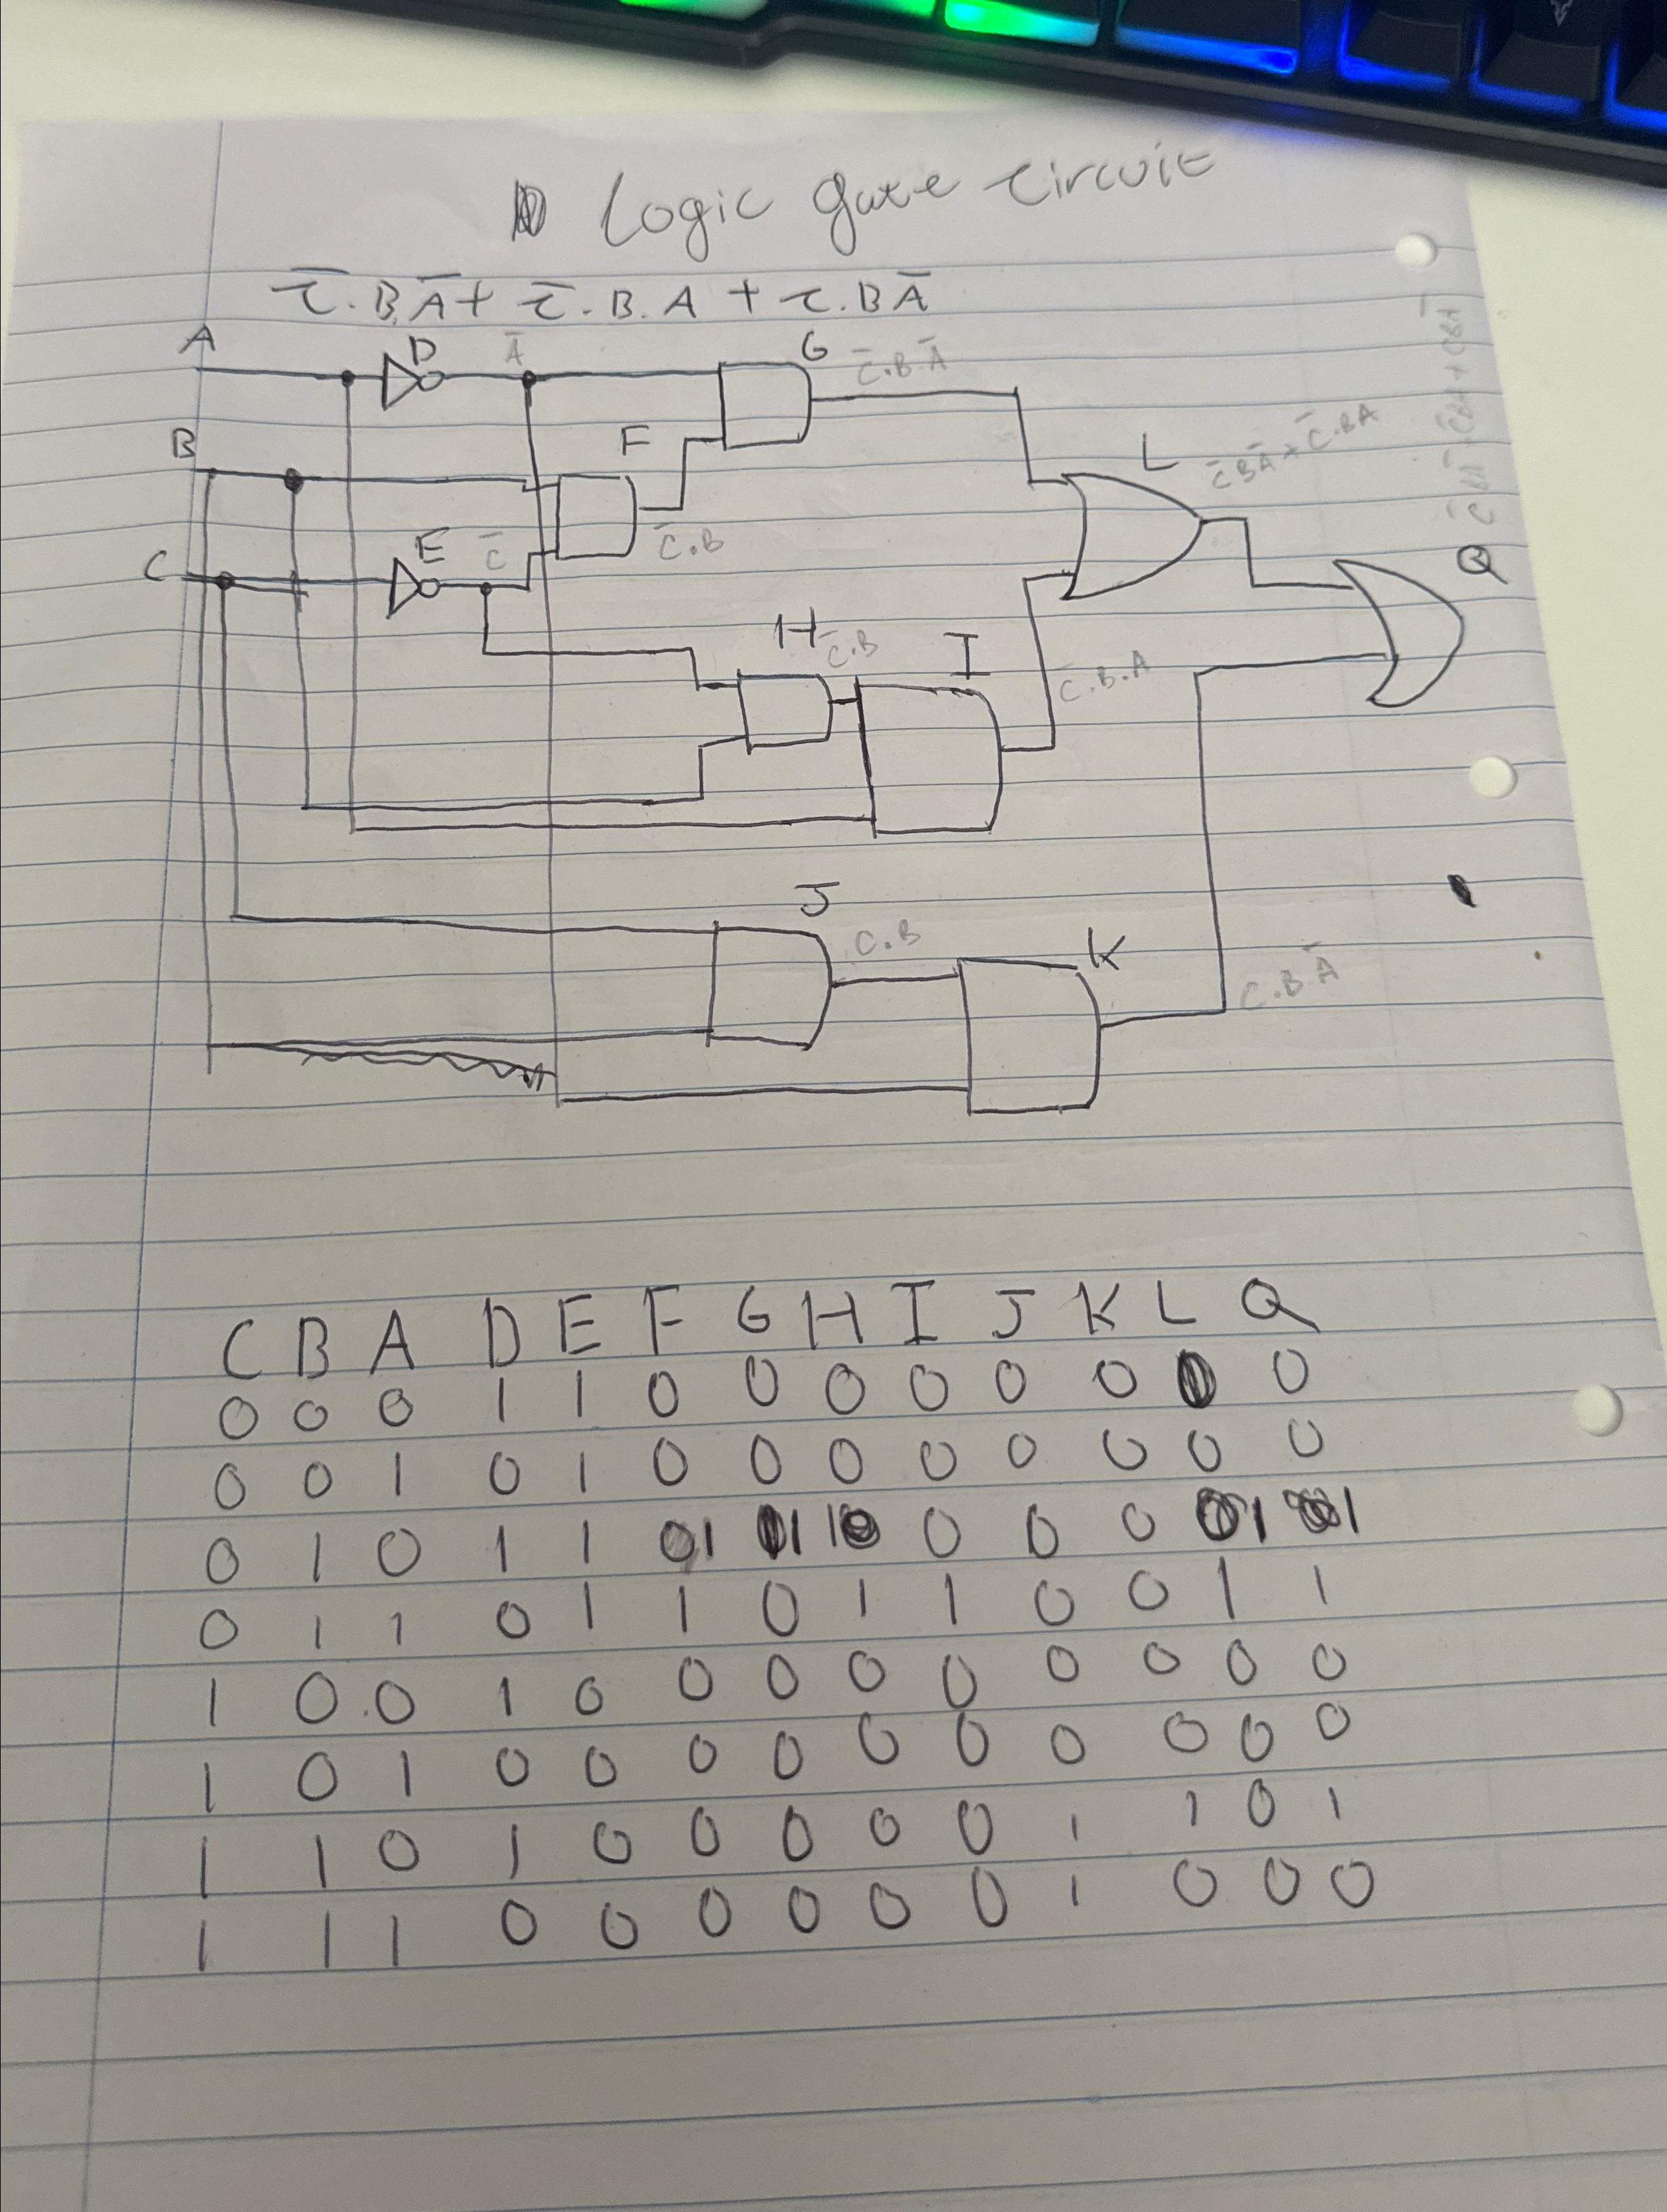 Logic gate circuit
C̅.B.A̅ + C̅.B.A + C.BA̅
A D A̅ G C̅.B.A̅
B F L C̅BA̅ + C̅.BA
C E C̅ C̅.B Q C̅BA̅ + C̅BA + CBA̅
H C̅.B I C̅.B.A
J C.B K C.B.A̅
C B A D E F G H I J K L Q
0 0 0 1 1 0 0 0 0 0 0 0
0 0 1 0 1 0 0 0 0 0 0 0 0
0 1 0 1 1 1 1 1 0 0 0 1 1
0 1 1 0 1 1 0 1 1 0 0 1 1
1 0 0 1 0 0 0 0 0 0 0 0 0
1 0 1 0 0 0 0 0 0 0 0 0 0
1 1 0 1 0 0 0 0 0 1 1 0 1
1 1 1 0 0 0 0 0 0 1 0 0 0